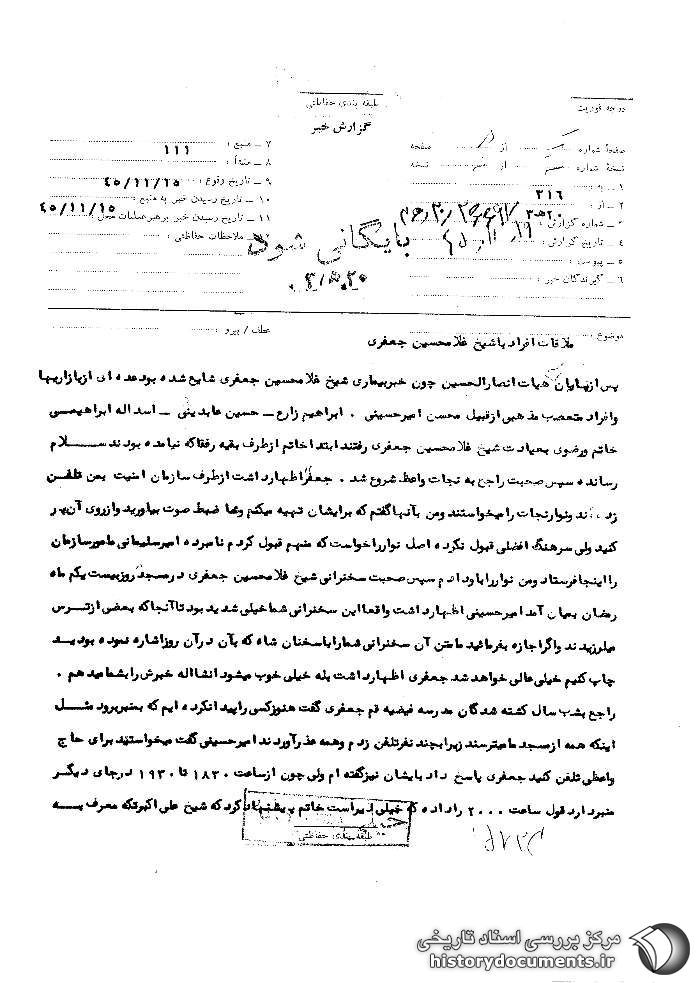 درجه فوریت
طبقه بندی حفاظتی
گزارش خبر
صفحهٔ شماره از صفحه
نسخهٔ شماره از نسخه
۱ ـ به : ۳۱۶
۲ ـ از :
۳ ـ شماره گزارش :
۴ ـ تاریخ گزارش :
۵ ـ پیوست :
۶ ـ گیرندگان خبر :
۷ ـ منبع : ۱۱۱
۸ ـ منشأ :
۹ ـ تاریخ وقوع : ۴۵/۱۱/۱۵
۱۰ ـ تاریخ رسیدن خبر به منبع :
۱۱ ـ تاریخ رسیدن خبر برهبر عملیات محل : ۴۵/۱۱/۱۵
۱۲ ـ ملاحظات حفاظتی :
بایگانی شود
موضوع : ملاقات افراد با شیخ غلامحسین جعفری
عطف / پیرو :
پس از پایان هیات انصارالحسین چون خبر بیماری شیخ غلامحسین جعفری شایع شده بود عده ای از بازاریها
و افراد متعصب مذهبی از قبیل محسن امیرحسینی . ابراهیم زارع ـ حسین عابدینی ـ اسداله ابراهیمی
خاتم ورضوی بعیادت شیخ غلامحسین جعفری رفتند ابتدا خاتم از طرف بقیه رفقا که نیامده بودند سلام
رسانده سپس صحبت راجع به نجات واعظ شروع شد . جعفری اظهارداشت از طرف سازمان امنیت بمن تلفن
زده اند و نوار نجات را میخواستند ومن بآنها گفتم که برایشان تهیه میکنم وشما ضبط صوت بیاورید و از روی آن پر
کنید ولی سرهنگ افضلی قبول نکرده اصل نوار را خواست که منهم قبول کردم نامبرده امیرسلیمانی مامور سازمان
را اینجا فرستاد ومن نوار را باو دادم سپس صحبت سخنرانی شیخ غلامحسین جعفری درمسجد روز بیست یکم ماه
رمضان بمیان آمد امیرحسینی اظهارداشت واقعا این سخنرانی شما خیلی شدید بود تا آنجا که بعضی از ترس
میلرزیدند واگر اجازه بفرمائید ما متن آن سخنرانی شما را با سخنان شاه که بآن در آن روز اشاره نموده بودید
چاپ کنیم خیلی عالی خواهد شد جعفری اظهارداشت بله خیلی خوب میشود انشااله خبرش را بشما میدهم .
راجع بشب سال کشته شدگان مدرسه فیضیه قم جعفری گفت هنوز کسی را پیدا نکرده ایم که بمنبر برود مثل
اینکه همه از مسجد ما میترسند زیرا بچند نفر تلفن زدم وهمه عذر آوردند امیرحسینی گفت میخواستید برای حاج
واعظی تلفن کنید جعفری پاسخ داد بایشان نیز گفته ام ولی چون از ساعت ۱۸۳۰ تا ۱۹۳۰ در جای دیگر
منبر دارد قول ساعت ۲۰۰۰ را داده که خیلی دیر است خاتم پیشنهاد کرد که شیخ علی اکبر ترکه معرف به
طبقه بندی حفاظتی
مرکز بررسی اسناد تاریخی
historydocuments.ir